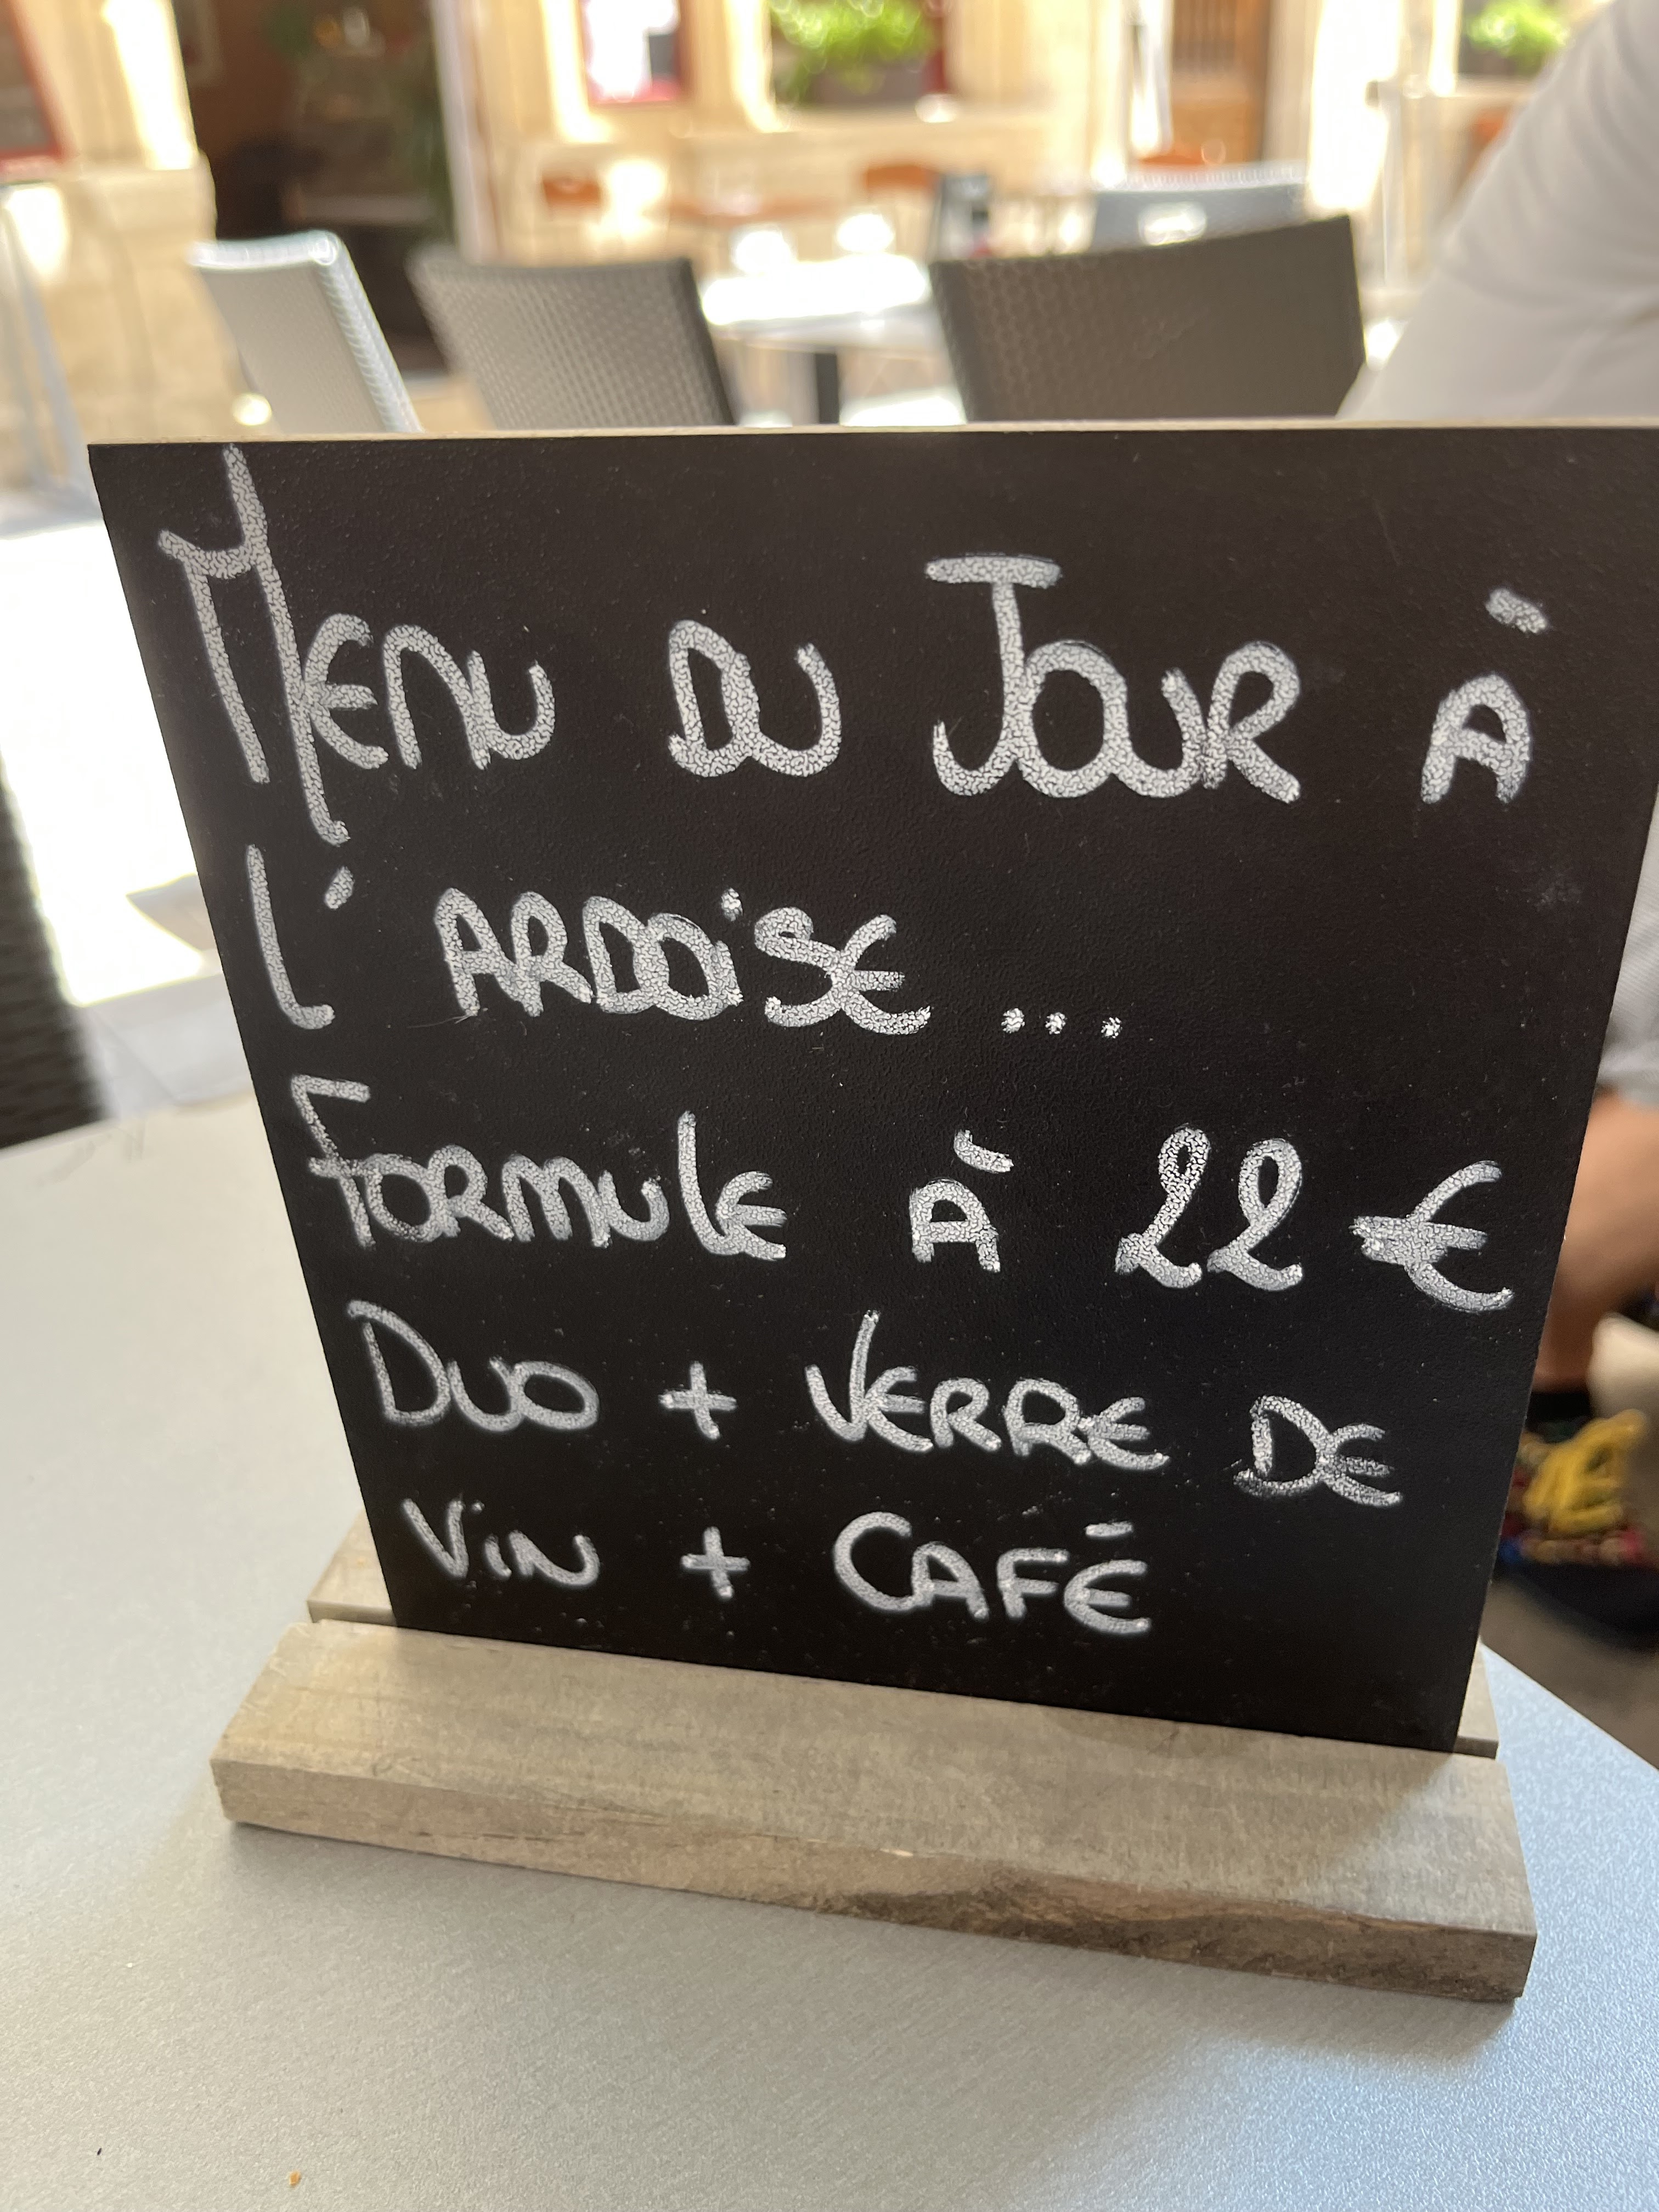 MENU DU JOUR À
L' ARDOISE ...
FORMULE À 22 €
DUO + VERRE DE
VIN + CAFÉ